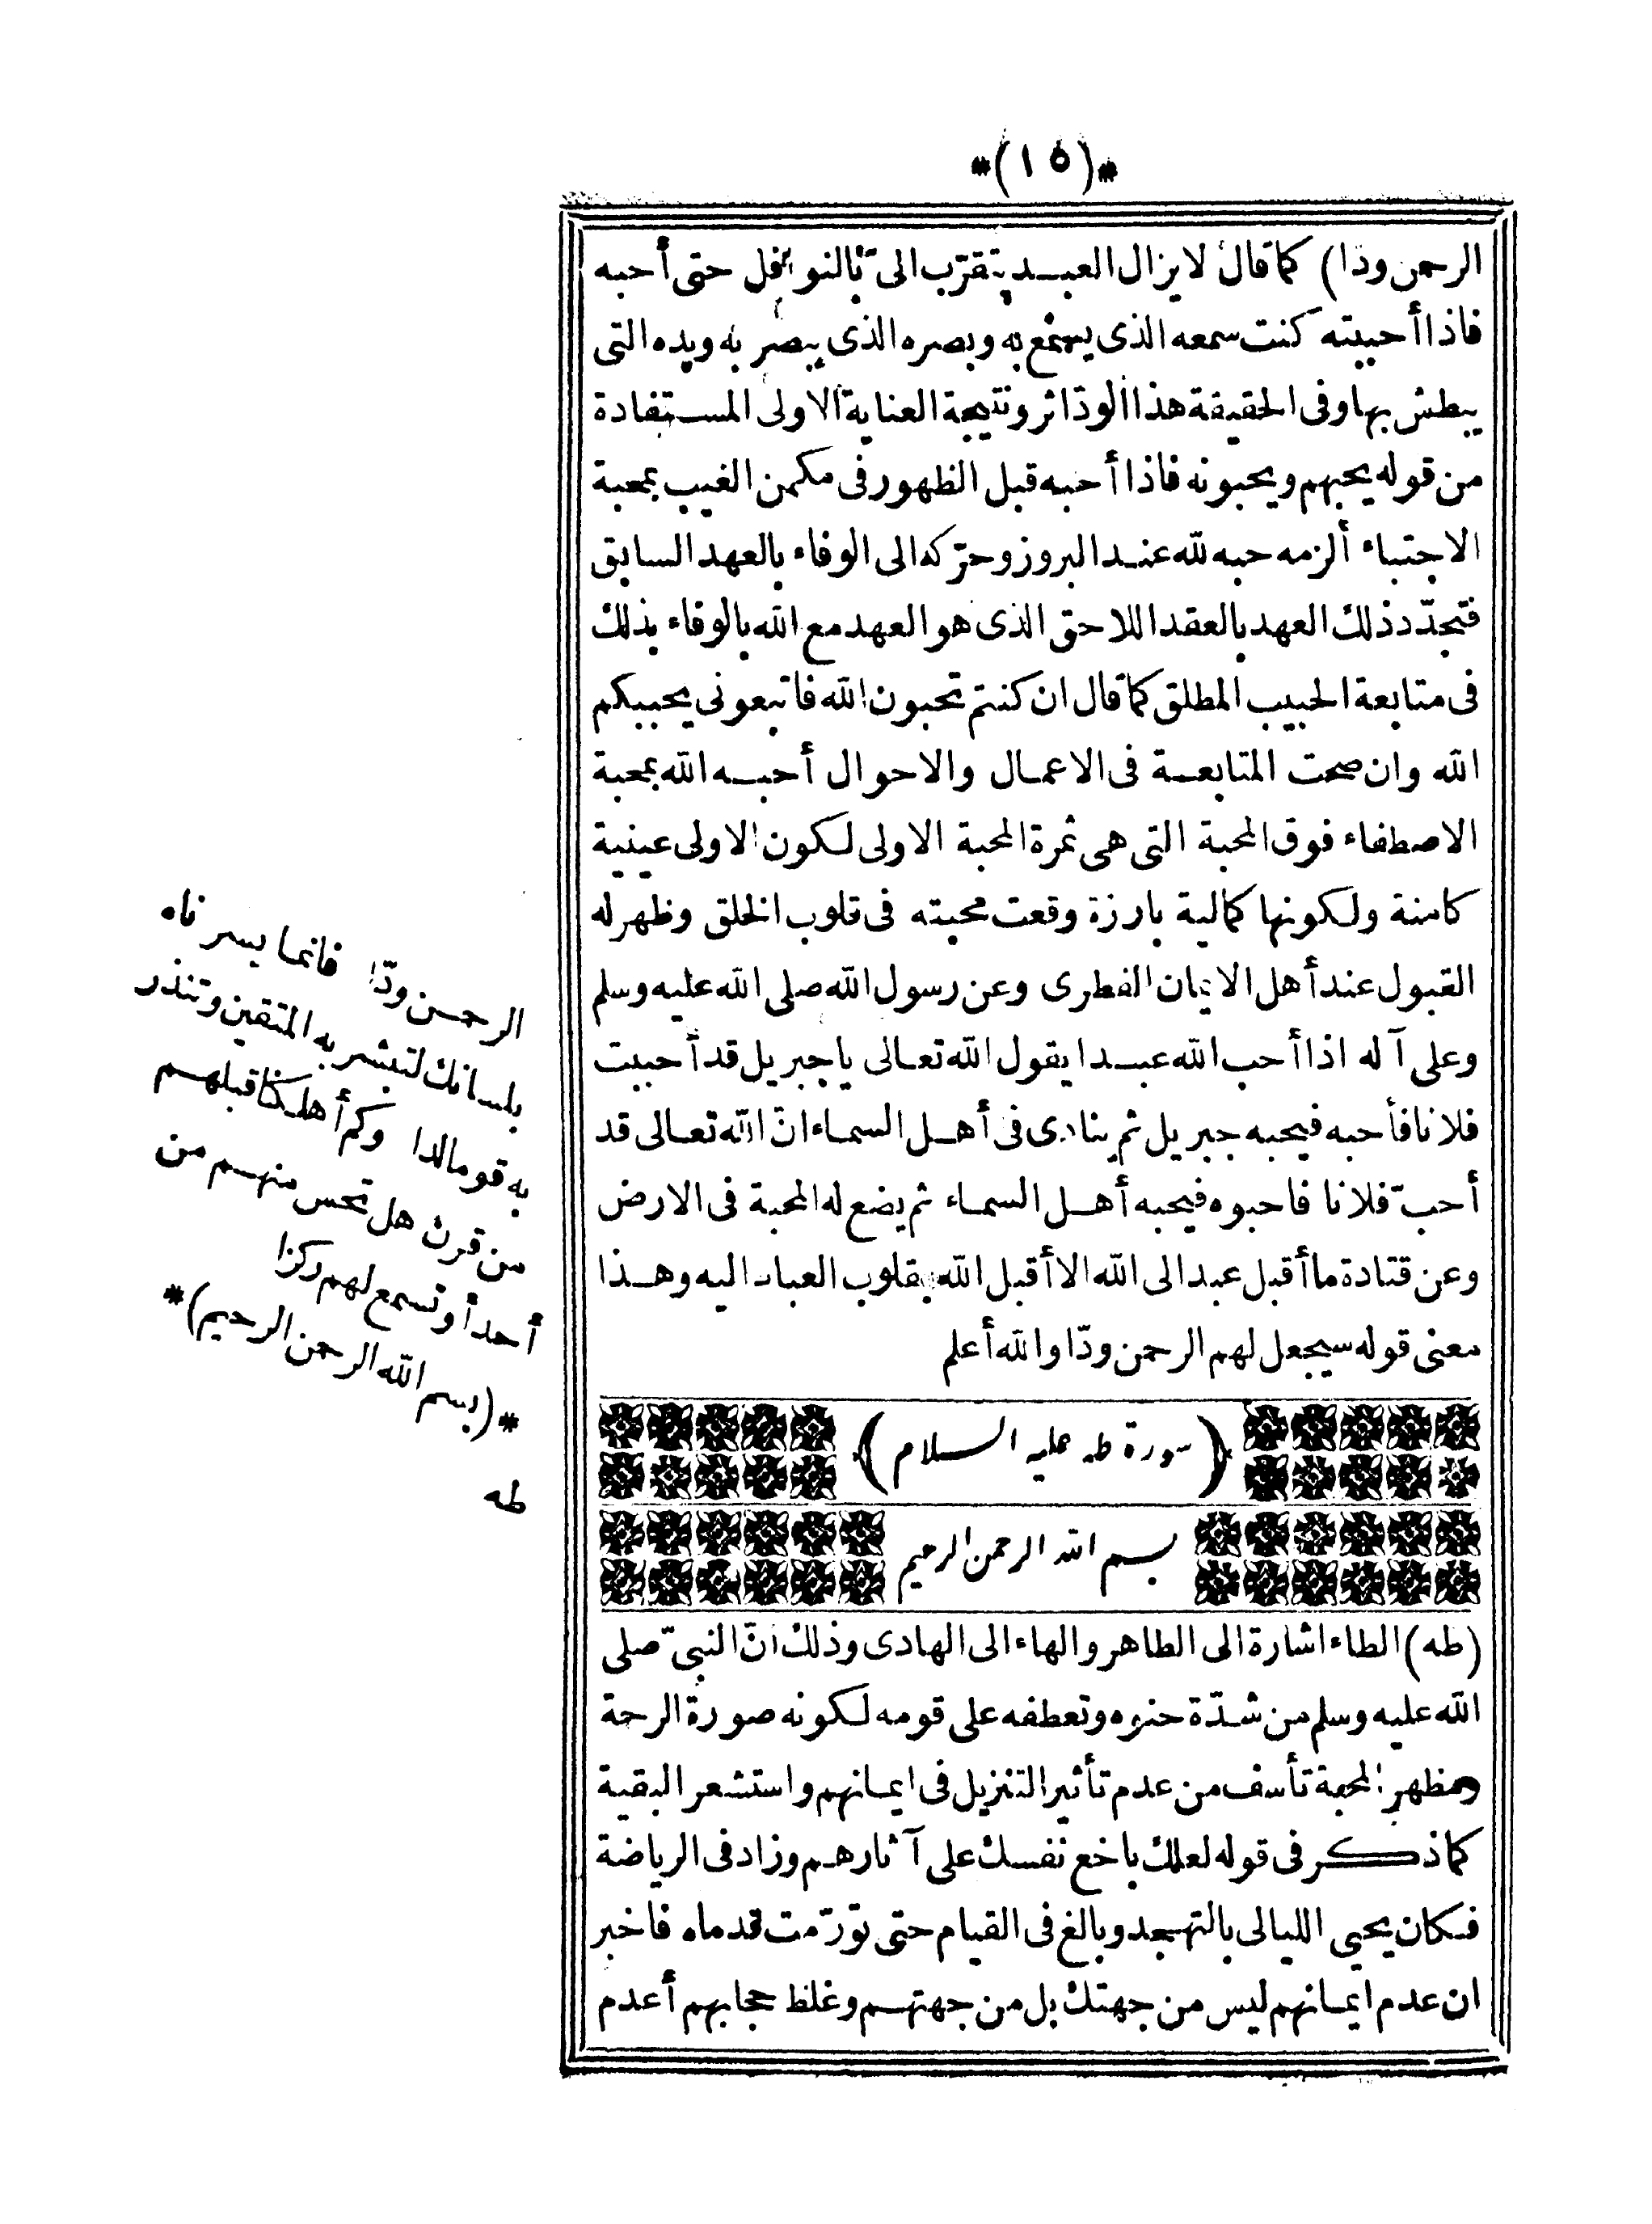 *(١٥)*
الرحمن ودّا) كما قال لا يزال العبد يتقرّب الىّ بالنوافل حتى أحبه
فاذا أحببته كنت سمعه الذى يسمع به وبصره الذى يبصر به ويده التى
يبطش بها وفى الحقيقة هذا الودّ اثر ونتيجة العناية الاولى المستفادة
من قوله يحبهم ويحبونه فاذا أحبه قبل الظهور فى مكمن الغيب بمحبة
الاجتباء ألزمه حبه لله عند البروز وحرّكه الى الوفاء بالعهد السابق
فتجدّد ذلك العهد بالعقد اللاحق الذى هو العهد مع الله بالوفاء بذلك
فى متابعة الحبيب المطلق كما قال ان كنتم تحبون الله فاتبعونى يحببكم
الله وان صحت المتابعة فى الاعمال والاحوال أحبه الله بمحبة
الاصطفاء فوق المحبة التى هى ثمرة المحبة الاولى لكون الاولى عينية
كامنة ولكونها كمالية بارزة وقعت محبته فى قلوب الخلق وظهر له
القبول عند أهل الايمان الفطرى وعن رسول الله صلى الله عليه وسلم
وعلى آله اذا أحب الله عبدا يقول الله تعالى ياجبريل قد أحببت
فلانا فأحبه فيحبه جبريل ثم ينادى فى أهل السماء انّ الله تعالى قد
أحبّ فلانا فاحبوه فيحبه أهل السماء ثم يضع له المحبة فى الارض
وعن قتادة ما أقبل عبد الى الله الا أقبل الله بقلوب العباد اليه وهذا
معنى قوله سيجعل لهم الرحمن ودّا والله أعلم
(سورة طه عليه السلام)
بسم الله الرحمن الرحيم
(طه) الطاء اشارة الى الطاهر والهاء الى الهادى وذلك انّ النبىّ صلى
الله عليه وسلم من شدّة حنوه وتعطفه على قومه لكونه صورة الرحمة
ومظهر المحبة تأسف من عدم تأثير التنزيل فى ايمانهم واستشعر البقية
كما ذكر فى قوله لعلك باخع نفسك على آثارهم وزاد فى الرياضة
فكان يحيى الليالى بالتهجد وبالغ فى القيام حتى تورّمت قدماه فاخبر
ان عدم ايمانهم ليس من جهتك بل من جهتهم وغلظ حجابهم أعدم
الرحمن ودّا فانما يسرناه
بلسانك لتبشر به المتقين وتنذر
به قوما لدا وكم أهلكنا قبلهم
من قرن هل تحس منهم من
أحد أو تسمع لهم ركزا
*(بسم الله الرحمن الرحيم)*
طه